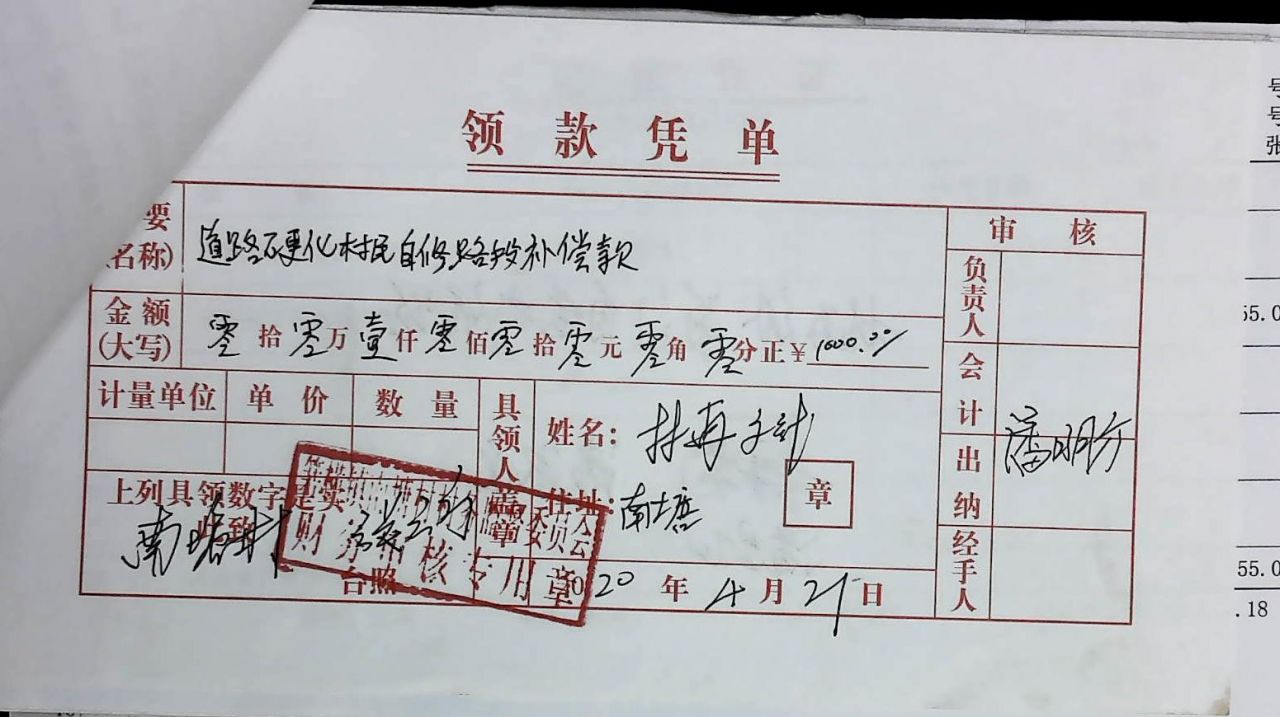 领款凭单
要
名称)
道路硬化村民自修路段补偿款
审核
负责人
金额
(大写)
零拾零万壹仟零佰零拾零元零角零分正¥1000.00
会计
计量单位 单价 数量
具领人盖章
姓名:林再
潘明
出纳
住址:南塘
章
上列具领数字是实
此致
南塘村
财务审核专用章
台照
2020年4月21日
经手人
号
号
张
55.0
55.0
.18